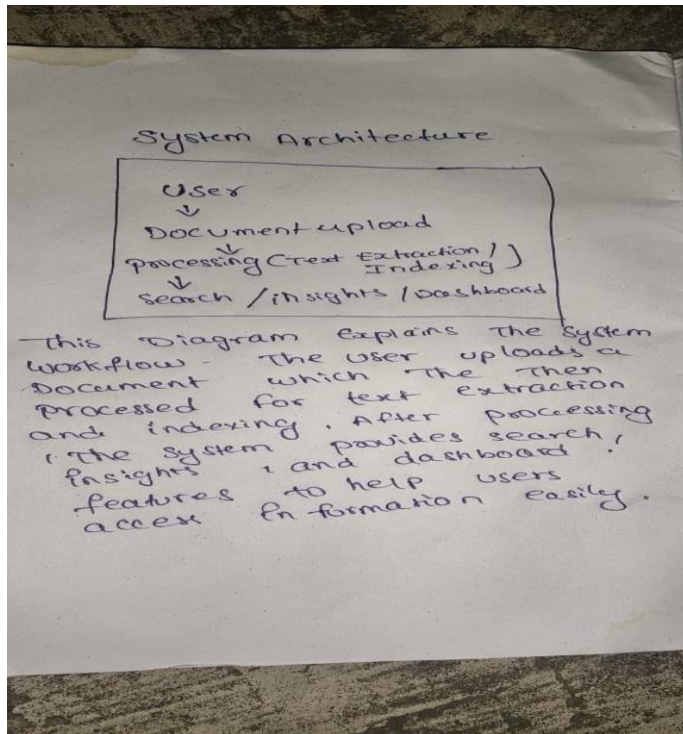 System Architecture
User
↓
Document upload
↓
processing (Text Extraction /
Indexing)
↓
Search / insights / Dashboard
This Diagram explains The System
workflow. The user uploads a
Document which The Then
processed for text extraction
and indexing. After proccessing
, The system pavides search,
insights , and dashboard
features to help users
access information easily.